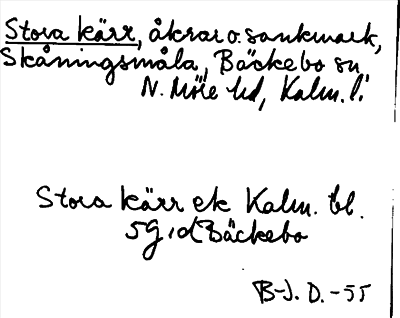 Stora kärr, åkrar o. sankmark,
Skåningsmåla, Bäckebo sn
N. Möre hd, Kalm. l.
Stora kärr ek Kalm. bl.
5g, d Bäckebo
B-J. D. -55